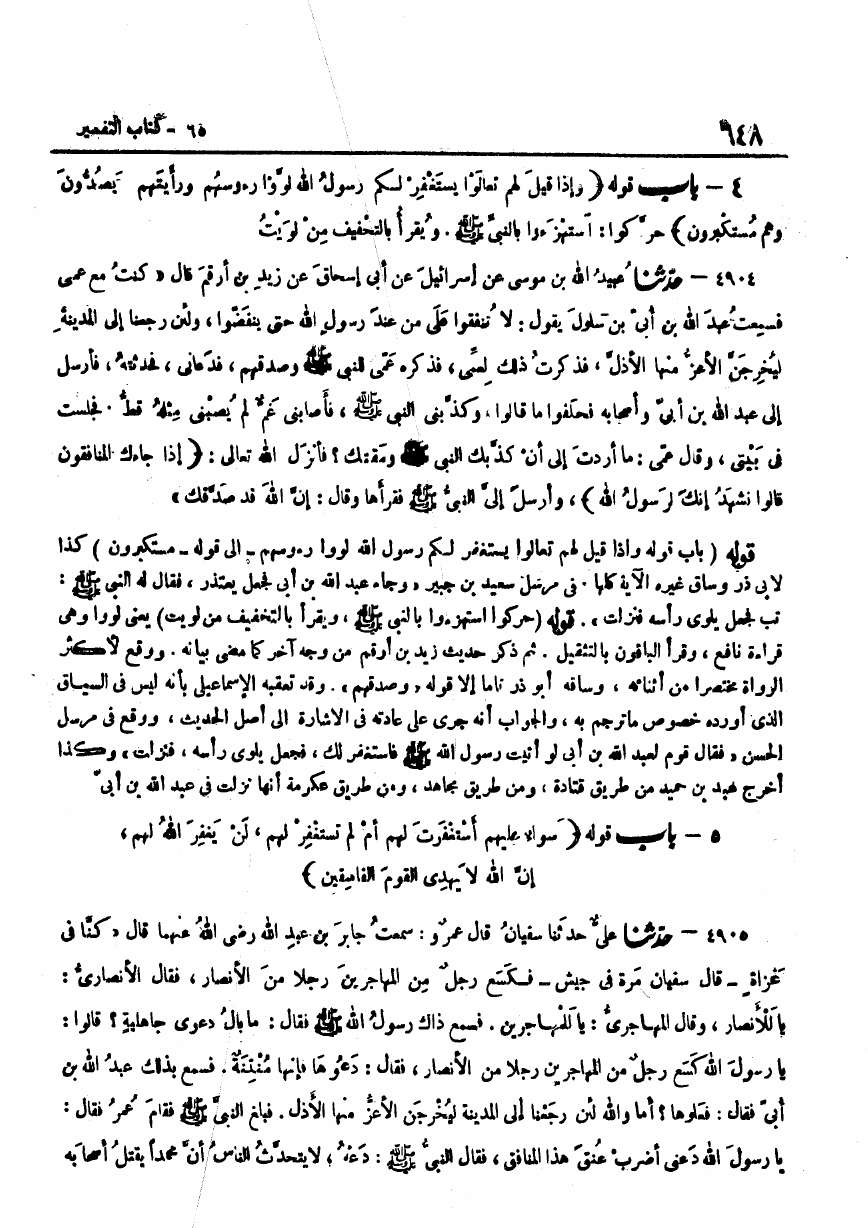 ٦٤٨ ٦٥ - كتاب التفسير
٤ - باب قوله ﴿ وإذا قيلَ لهم تعالَوْا يستَغْفِرْ لكم رسولُ الله لوَّوْا رءوسهُم ورأيتَهم يَصُدُّونَ
وهم مُستكبرون ﴾ حرَّكوا : استهزَءوا بالنبيِّ ﷺ . ويُقرأُ بالتخفيف مِنْ لوَيْتُ
٤٩٠٤ - حدّثنا عُبيدُ الله بن موسى عن إسرائيلَ عن أبى إسحاقَ عن زيدِ بن أرقمَ قال « كنتُ مع عمى
فسمعتُ عبدَ الله بن أبىّ بن سلولَ يقول : لا تُنفقوا علَى من عندَ رسولِ الله حتى ينفَضُّوا ، ولئن رجعنا إلى المدينةِ
ليُخرِجَنَّ الأعزُّ منها الأذلَّ ، فذكرتُ ذلك لعمِّى ، فذكره عَمّى للنبى ﷺ وصدقهم ، فدعانى ، فحدثتهُ ، فأرسل
إلى عبد الله بن أبىّ وأصحابه فحلفوا ما قالوا ، وكذَّبنى النبى ﷺ ، فأصابنى غمٌّ لم يُصبْنى مِثلهُ قطُّ . فجلست
فى بَيْتى ، وقال عمّى : ما أردتَ إلى أنْ كذَّبك النبى ﷺ ومَقتك ؟ فأنزَل اللهُ تعالى : ﴿ إذا جاءك المنافقون
قالوا نشهَدُ إنكَ لَرسولُ الله ﴾ ، وأرسلَ إلىَّ النبىُّ ﷺ فقرأها وقال : إنَّ اللهَ قد صدَّقك »
قوله ( باب قوله واذا قيل لهم تعالوا يستغفر لكم رسول الله لووا رءوسهم - الى قوله - مستكبرون ) كذا
لابى ذر وساق غيره الآية كلها . فى مرسل سعيد بن جبير « وجاء عبد الله بن أبى فجعل يعتذر ، فقال له النبى ﷺ :
تب فجعل يلوى رأسه فنزلت » . قوله ( حركوا استهزءوا بالنبى ﷺ ، ويقرأ بالتخفيف من لويت) يعنى لووا وهى
قراءة نافع ، وقرأ الباقون بالتثقيل . ثم ذكر حديث زيد بن أرقم من وجه آخر كما مضى بيانه . ووقع لأكثر
الرواة مختصرا من أثنائه ، وساقه أبو ذر تاما إلا قوله « وصدقهم » . وقد تعقبه الإسماعيلى بأنه ليس فى السياق
الذى أورده خصوص ماترجم به ، والجواب أنه جرى على عادته فى الاشارة الى أصل الحديث ، ووقع فى مرسل
الحسن « فقال قوم لعبد الله بن أبى لو أتيت رسول الله ﷺ فاستغفر لك ، فجعل يلوى رأسه ، فنزلت » وكذا
أخرج عبد بن حميد من طريق قتادة ، ومن طريق مجاهد ، ومن طريق عكرمة أنها نزلت فى عبد الله بن أبىّ
٥ - باب قوله ﴿ سواءٌ عليهم أَسْتَغْفَرتَ لهم أمْ لم تستغفِرْ لهم ، لَنْ يَغفِرَ اللهُ لهم ،
إنَّ الله لا يَهدِى القومَ الفاسِقين ﴾
٤٩٠٥ - حدّثنا علىٌّ حدثنا سفيانُ قال عمرٌو : سمعتُ جابرَ بن عبدِ الله رضى اللهُ عنهما قال « كنَّا فى
غَزاةٍ - قال سفيان مَرة فى جيش - فكَسَع رجلٌ مِن المهاجرينَ رجلا منَ الأنصار ، فقال الأنصارىُّ :
يا لَلْأنصار ، وقال المهاجرىُّ : يا لَلْمهاجرين . فسمع ذاك رسولُ الله ﷺ فقال : ما بالُ دعوى جاهليةٍ ؟ قالوا :
يا رسولَ الله كَسَع رجلٌ من المهاجرين رجلا من الأنصار ، فقال : دَعُوها فإنها مُنْتِنَةٌ . فسمع بذلك عبدُ الله بن
أبىّ فقال : فعَلوها ؟ أما والله لئن رجَعْنا إلى المدينة ليُخرِجَن الأعزُّ منها الأذل . فبلغ النبىَّ ﷺ فقامَ عُمرُ فقال :
يا رسولَ الله دَعنى أضرِبْ عُنقَ هذا المنافق ، فقال النبىُّ ﷺ : دَعْهُ ، لايتحدَّثُ الناسُ أنَّ محمداً يقتلُ أصحابَه